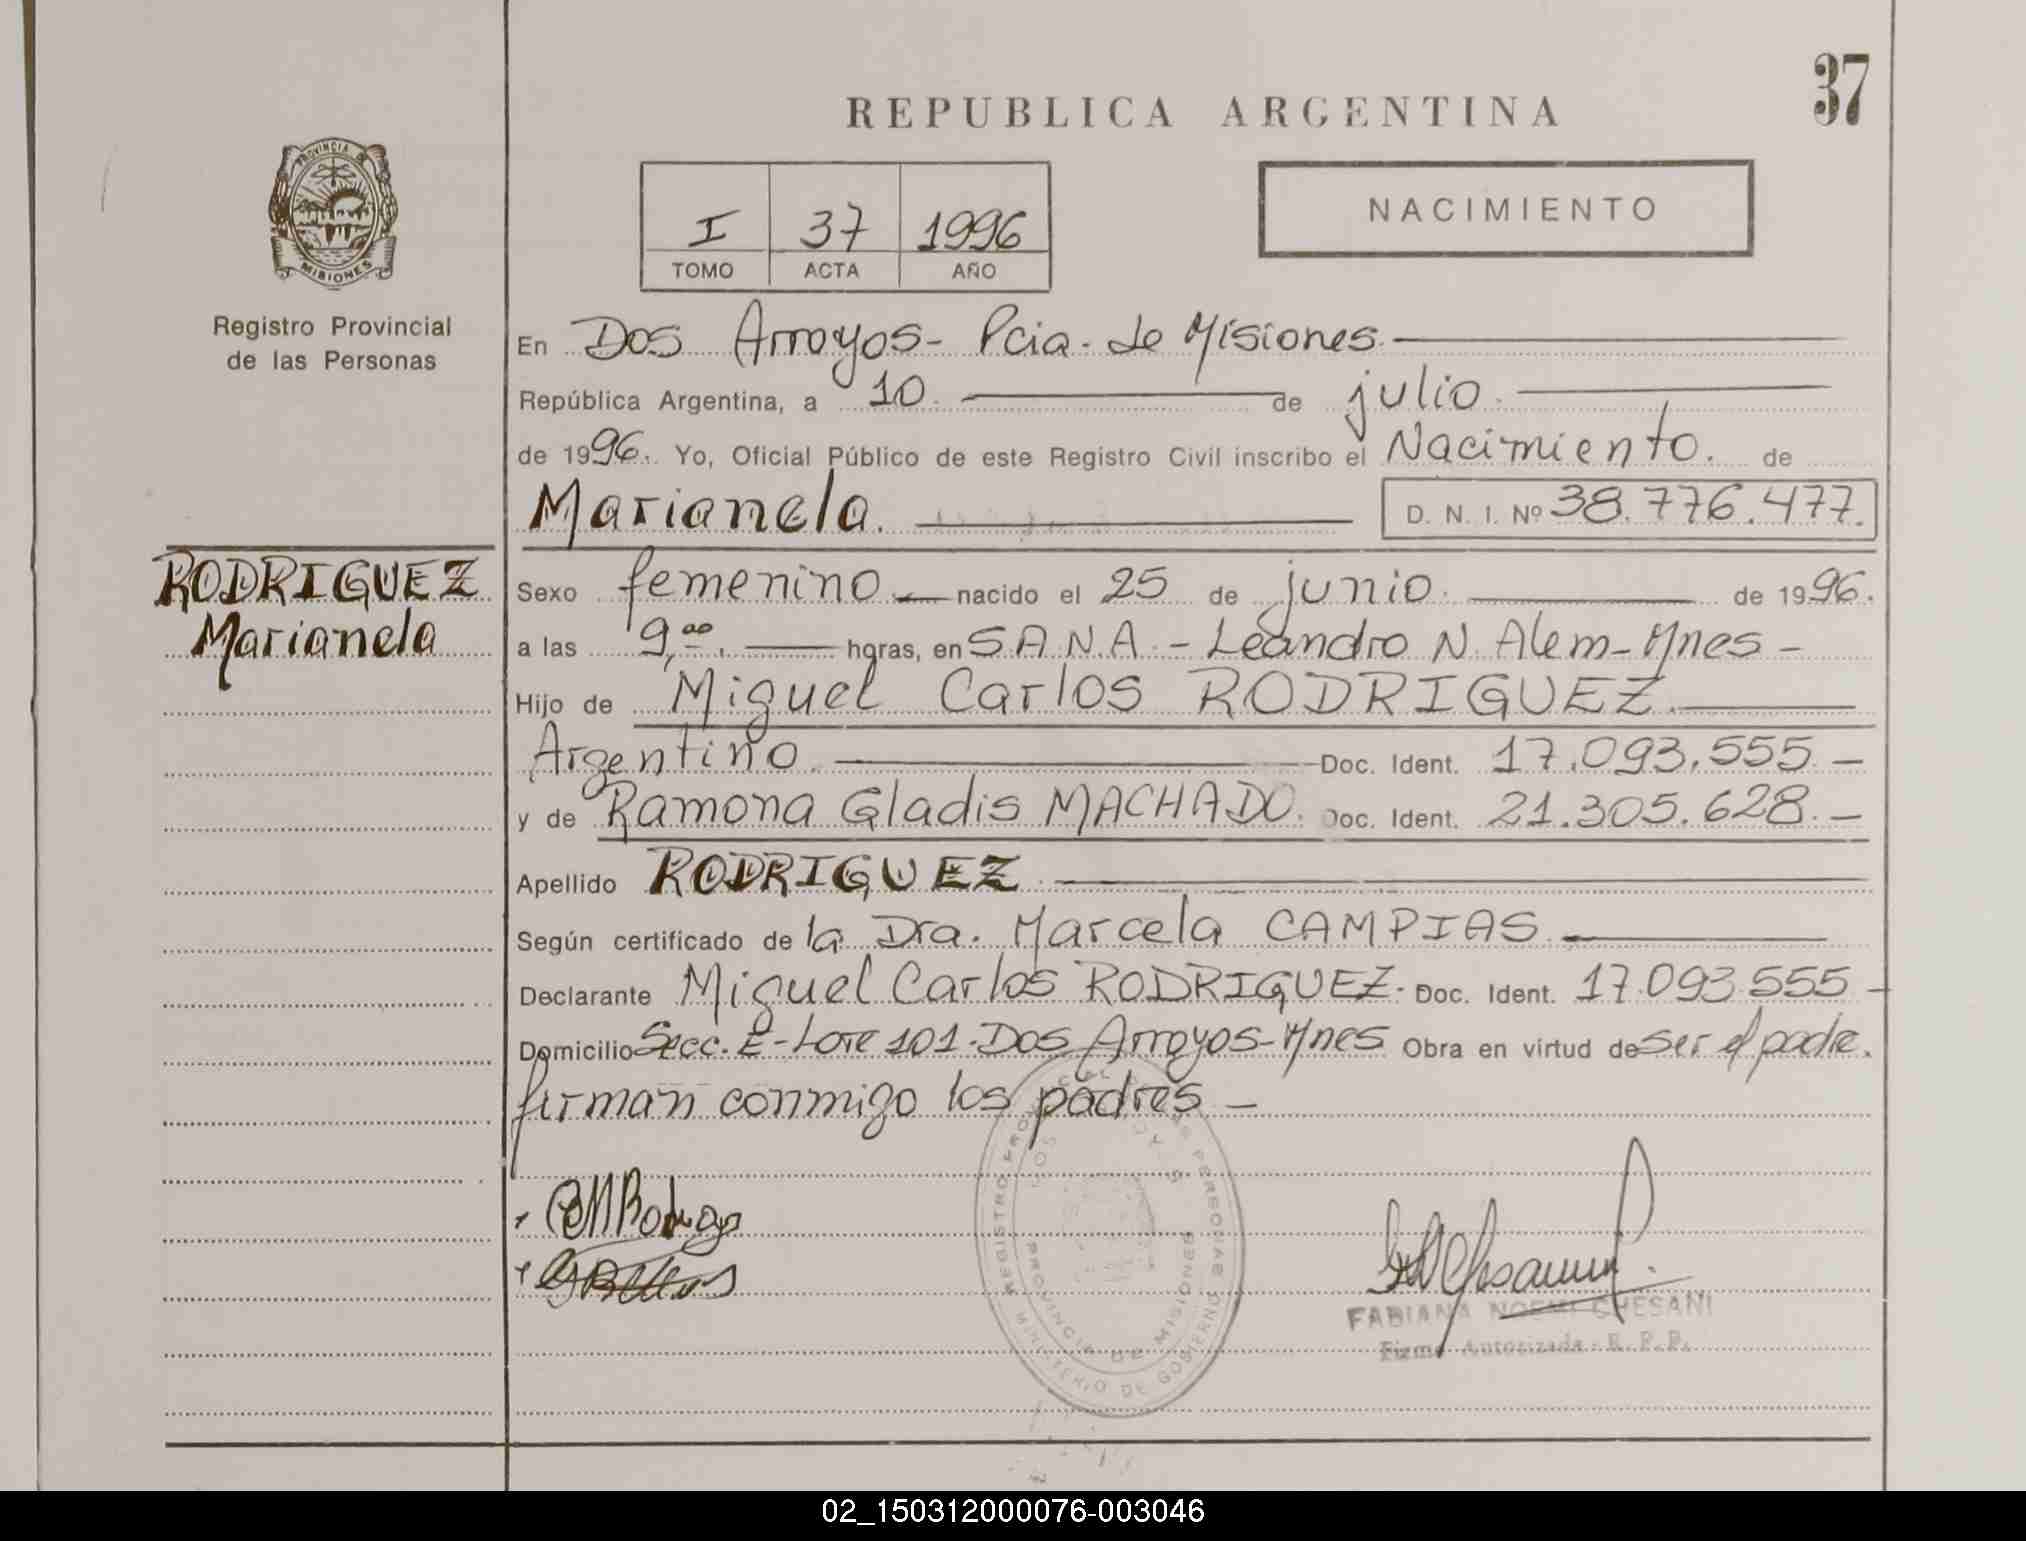 37
REPUBLICA ARGENTINA
PROVINCIA DE
MISIONES
Registro Provincial
de las Personas
I 37 1996
TOMO ACTA AÑO
NACIMIENTO
En Dos Arroyos - Pcia. de Misiones.
República Argentina, a 10. de julio.
de 1996. Yo, Oficial Público de este Registro Civil inscribo el Nacimiento. de
Marianela. D. N. I. Nº 38.776.477.
RODRIGUEZ
Marianela
Sexo femenino nacido el 25 de junio. de 1996.
a las 9,00. horas, en S.A.N.A. - Leandro N. Alem - Mnes -
Hijo de Miguel Carlos RODRIGUEZ.
Argentino. Doc. Ident. 17.093.555. -
y de Ramona Gladis MACHADO. Doc. Ident. 21.305.628. -
Apellido RODRIGUEZ.
Según certificado de la Dra. Marcela CAMPIAS.
Declarante Miguel Carlos RODRIGUEZ. Doc. Ident. 17.093.555 -
Domicilio Secc. E - Lote 101. Dos Arroyos - Mnes Obra en virtud de ser el padre.
firman conmigo los padres -
REGISTRO PROVINCIAL DE LAS PERSONAS
PROVINCIA DE MISIONES
MINISTERIO DE GOBIERNO
FABIANA NOEMI CHESANI
Firma Autorizada - R. P. P.
02_150312000076-003046